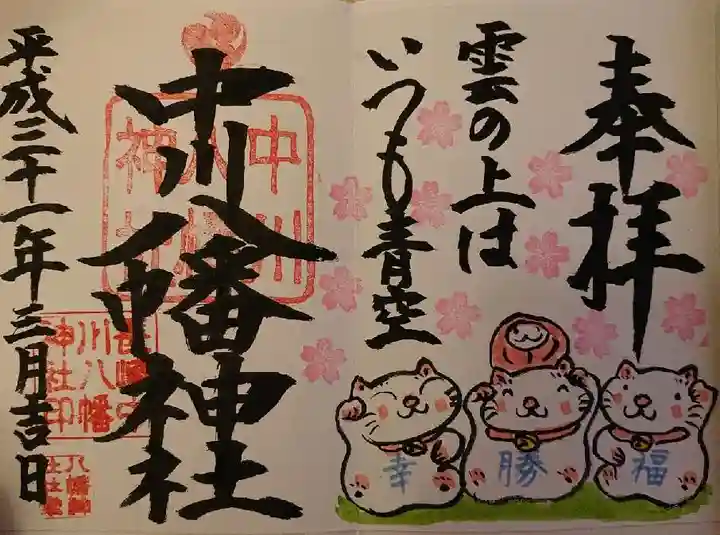 奉拝
雲の上は
いつも青空
幸
勝
福
中川八幡神社
中川
八幡
神社
平成三十一年三月吉日
川八幡
神社印